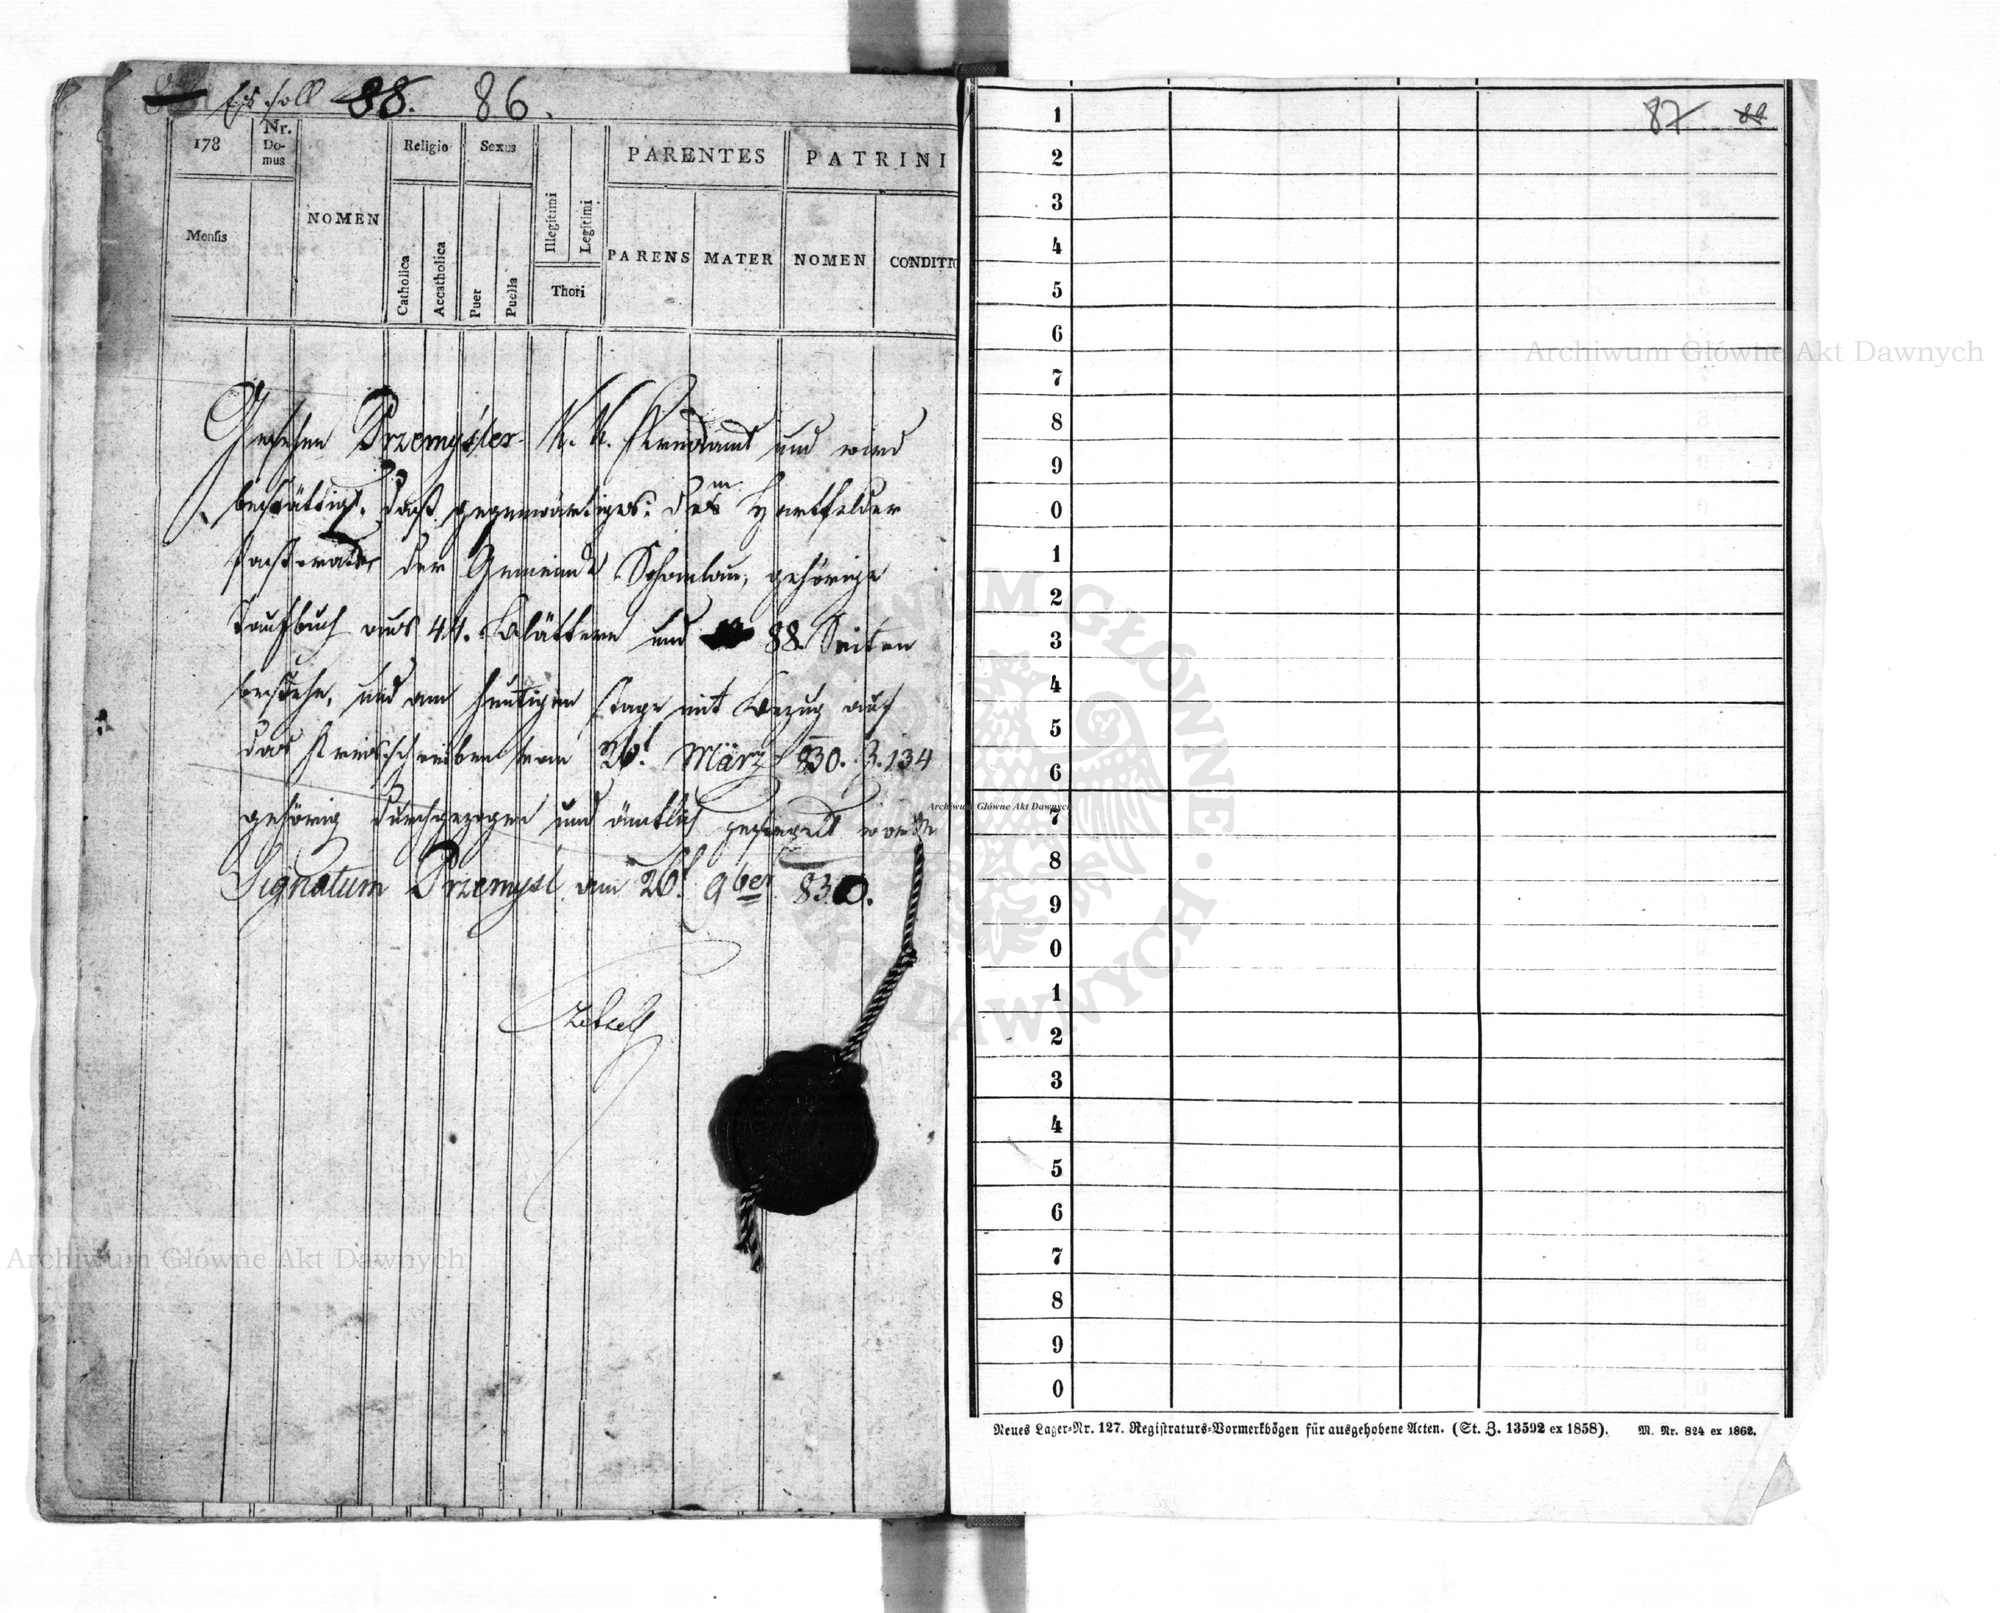 Es soll 88. 86.
178
Nr. Do- mus
NOMEN
Religio
Sexus
Illegitimi
Legitimi
PARENTES
PATRINI
Mensis
Catholica
Accatholica
Puer
Puella
Thori
PARENS
MATER
NOMEN
CONDITIO
Gesehen Przemysler K. K. Kreisamt und wird
bestättigt, daß gegenwärtiges: dem Hartfelder
Pastorate der Gemeinde Schönlau, gehörige
Taufbuch aus 44. Blättern und 88. Seiten
bestehe, und am heutigen Tage mit Bezug auf
das Kreisschreiben vom 26t. März 830. Z. 134
gehörig durchgezogen und ämtlich gesiegelt worden
Signatum Przemysl am 26t. 9ber 830.
87 89
1
2
3
4
5
6
7
8
9
0
1
2
3
4
5
6
7
8
9
0
1
2
3
4
5
6
7
8
9
0
Neues Lager-Nr. 127. Registraturs-Vormerkbögen für ausgehobene Acten. (St. Z. 13592 ex 1858). M. Nr. 824 ex 1862.
Archiwum Główne Akt Dawnych
Archiwum Główne Akt Dawnych
Archiwum Główne Akt Dawnych
ARCHIWUM GŁÓWNE · AKT DAWNYCH ·